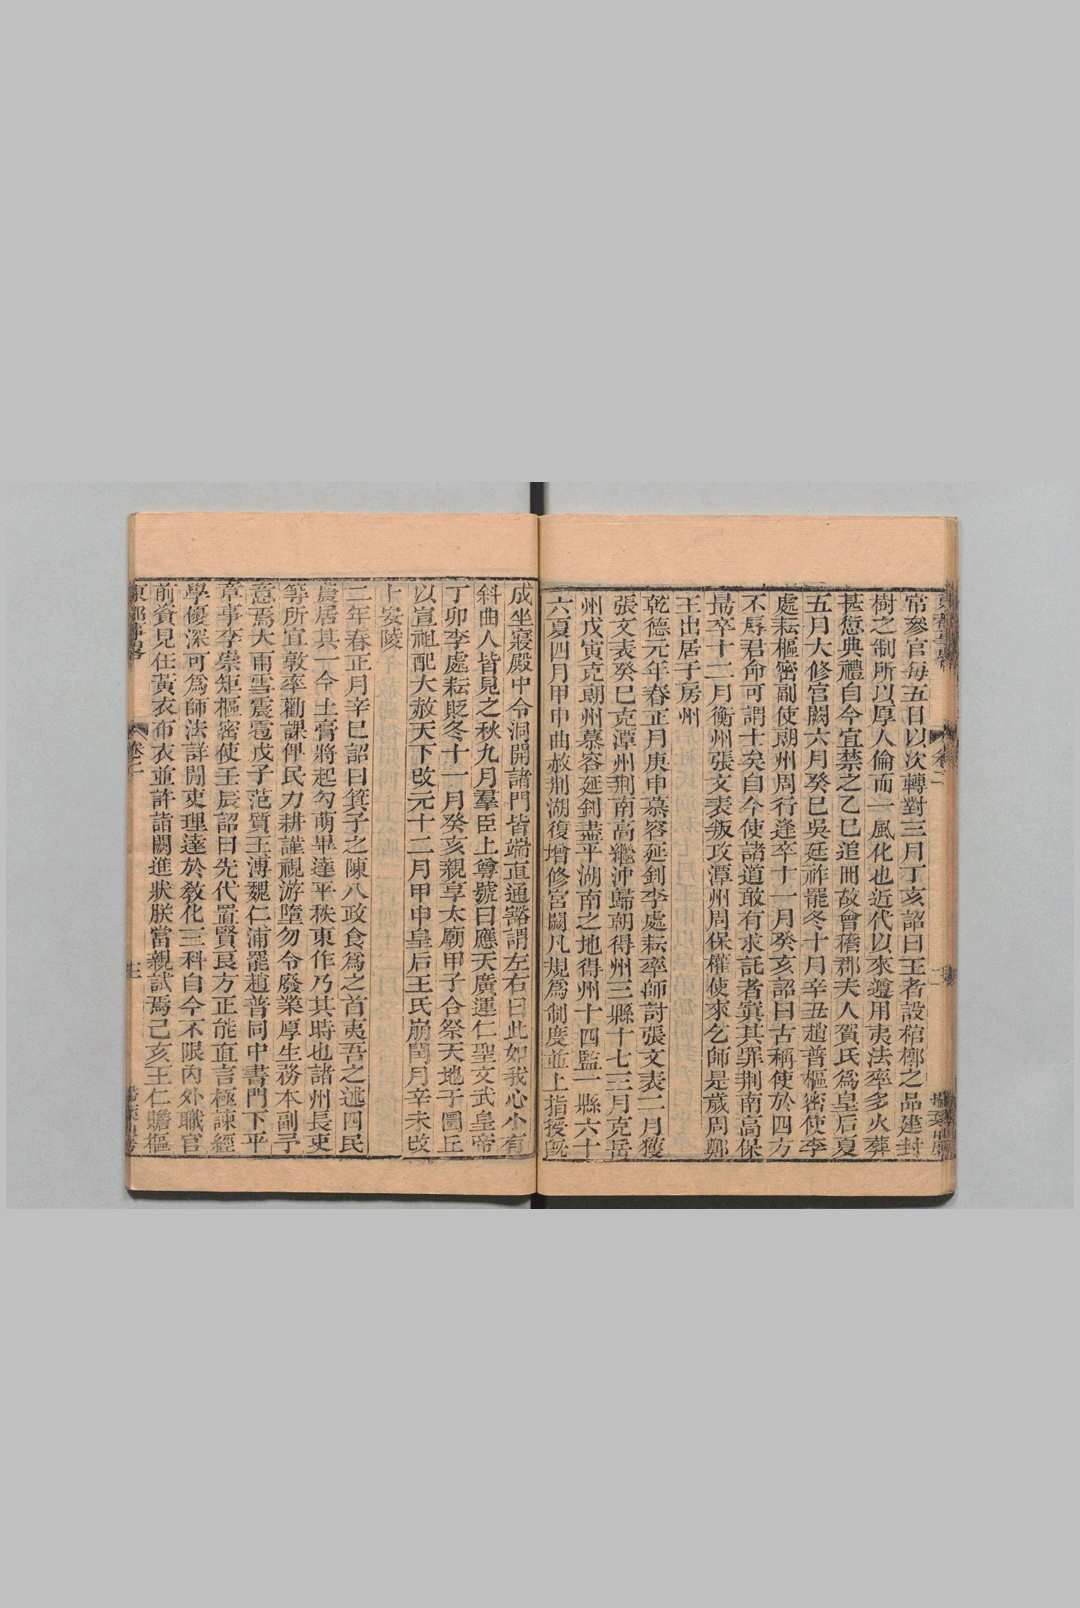 常參官每五日以次轉對三月丁亥詔曰王者設棺槨之品建封
樹之制所以厚人倫而一風化也近代以來遵用夷法率多火葬
甚愆典禮自今宜禁之乙巳追冊故會稽郡夫人賀氏爲皇后夏
五月大修宮闕六月癸巳吳廷祚罷冬十月辛丑趙普樞密使李
處耘樞密副使朗州周行逢卒十一月癸亥詔曰古稱使於四方
不辱君命可謂士矣自今使諸道敢有求託者寘其罪荆南高保
勗卒十二月衡州張文表叛攻潭州周保權使來乞師是歲周鄭
王出居于房州
乾德元年春正月庚申慕容延釗李處耘率師討張文表二月獲
張文表癸巳克潭州荆南高繼沖歸朝得州三縣十七三月克岳
州戊寅克朗州慕容延釗盡平湖南之地得州十四監一縣六十
六夏四月甲申曲赦荆湖復增修宮闕凡規爲制度並上指授旣
成坐寢殿中令洞開諸門皆端直通豁謂左右曰此如我心小有
斜曲人皆見之秋九月羣臣上尊號曰應天廣運仁聖文武皇帝
丁卯李處耘貶冬十一月癸亥親享太廟甲子合祭天地于圜丘
以宣祖配大赦天下改元十二月甲申皇后王氏崩閏月辛未改
卜安陵
二年春正月辛巳詔曰箕子之陳八政食爲之首夷吾之述四民
農居其一今土膏將起勾萌畢達平秩東作乃其時也諸州長吏
等所宜敦率勸課俾民力耕謹視游墮勿令廢業厚生務本副予
意焉大雨雪震雹戊子范質王溥魏仁浦罷趙普同中書門下平
章事李崇矩樞密使壬辰詔曰先代置賢良方正能直言極諫經
學優深可爲師法詳閒吏理達於敎化三科自今不限內外職官
前資見任黃衣布衣並許詣闕進狀朕當親試焉己亥王仁贍樞
東都事略
卷二
三